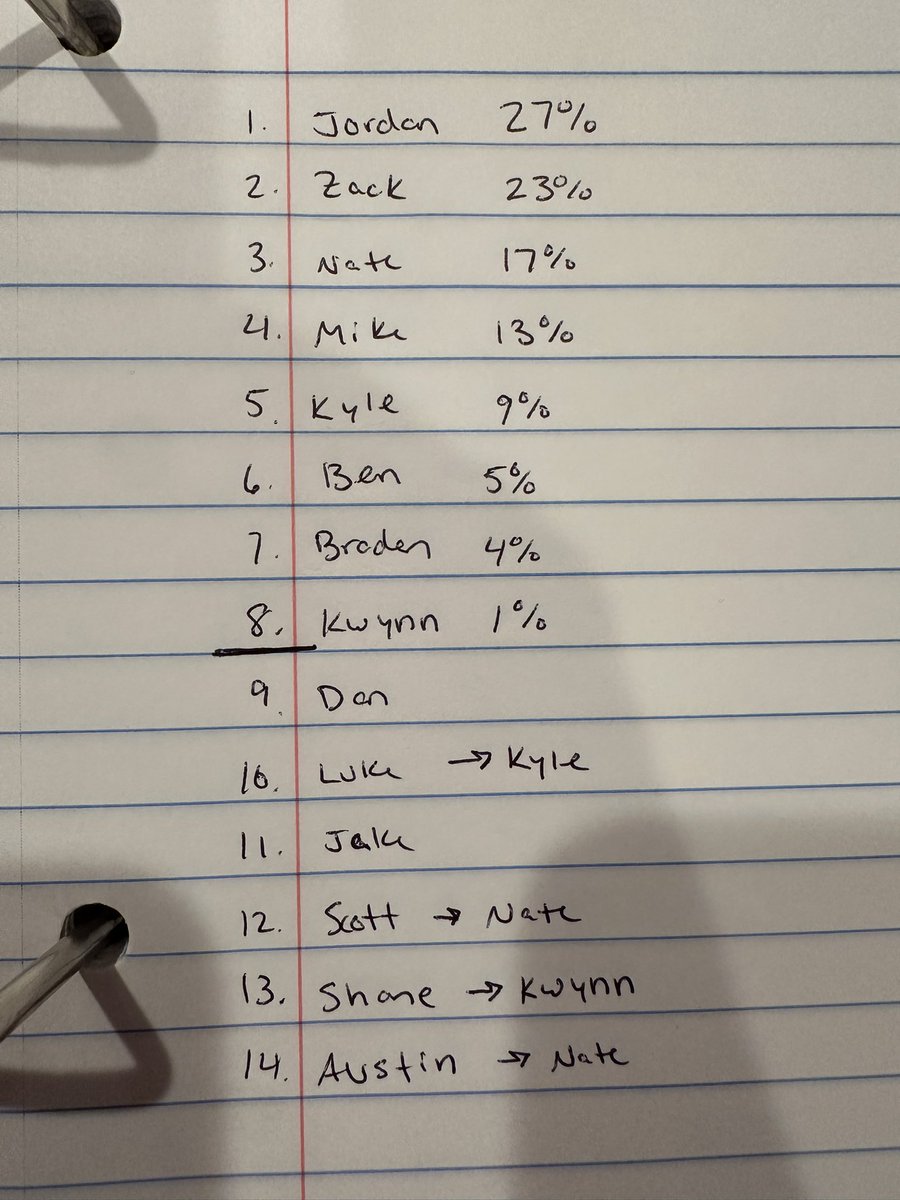 1. Jordan 27%
2. Zack 23%
3. Nate 17%
4. Mike 13%
5. Kyle 9%
6. Ben 5%
7. Braden 4%
8. Kwynn 1%
9. Dan
10. Luke → Kyle
11. Jake
12. Scott → Nate
13. Shane → Kwynn
14. Austin → Nate